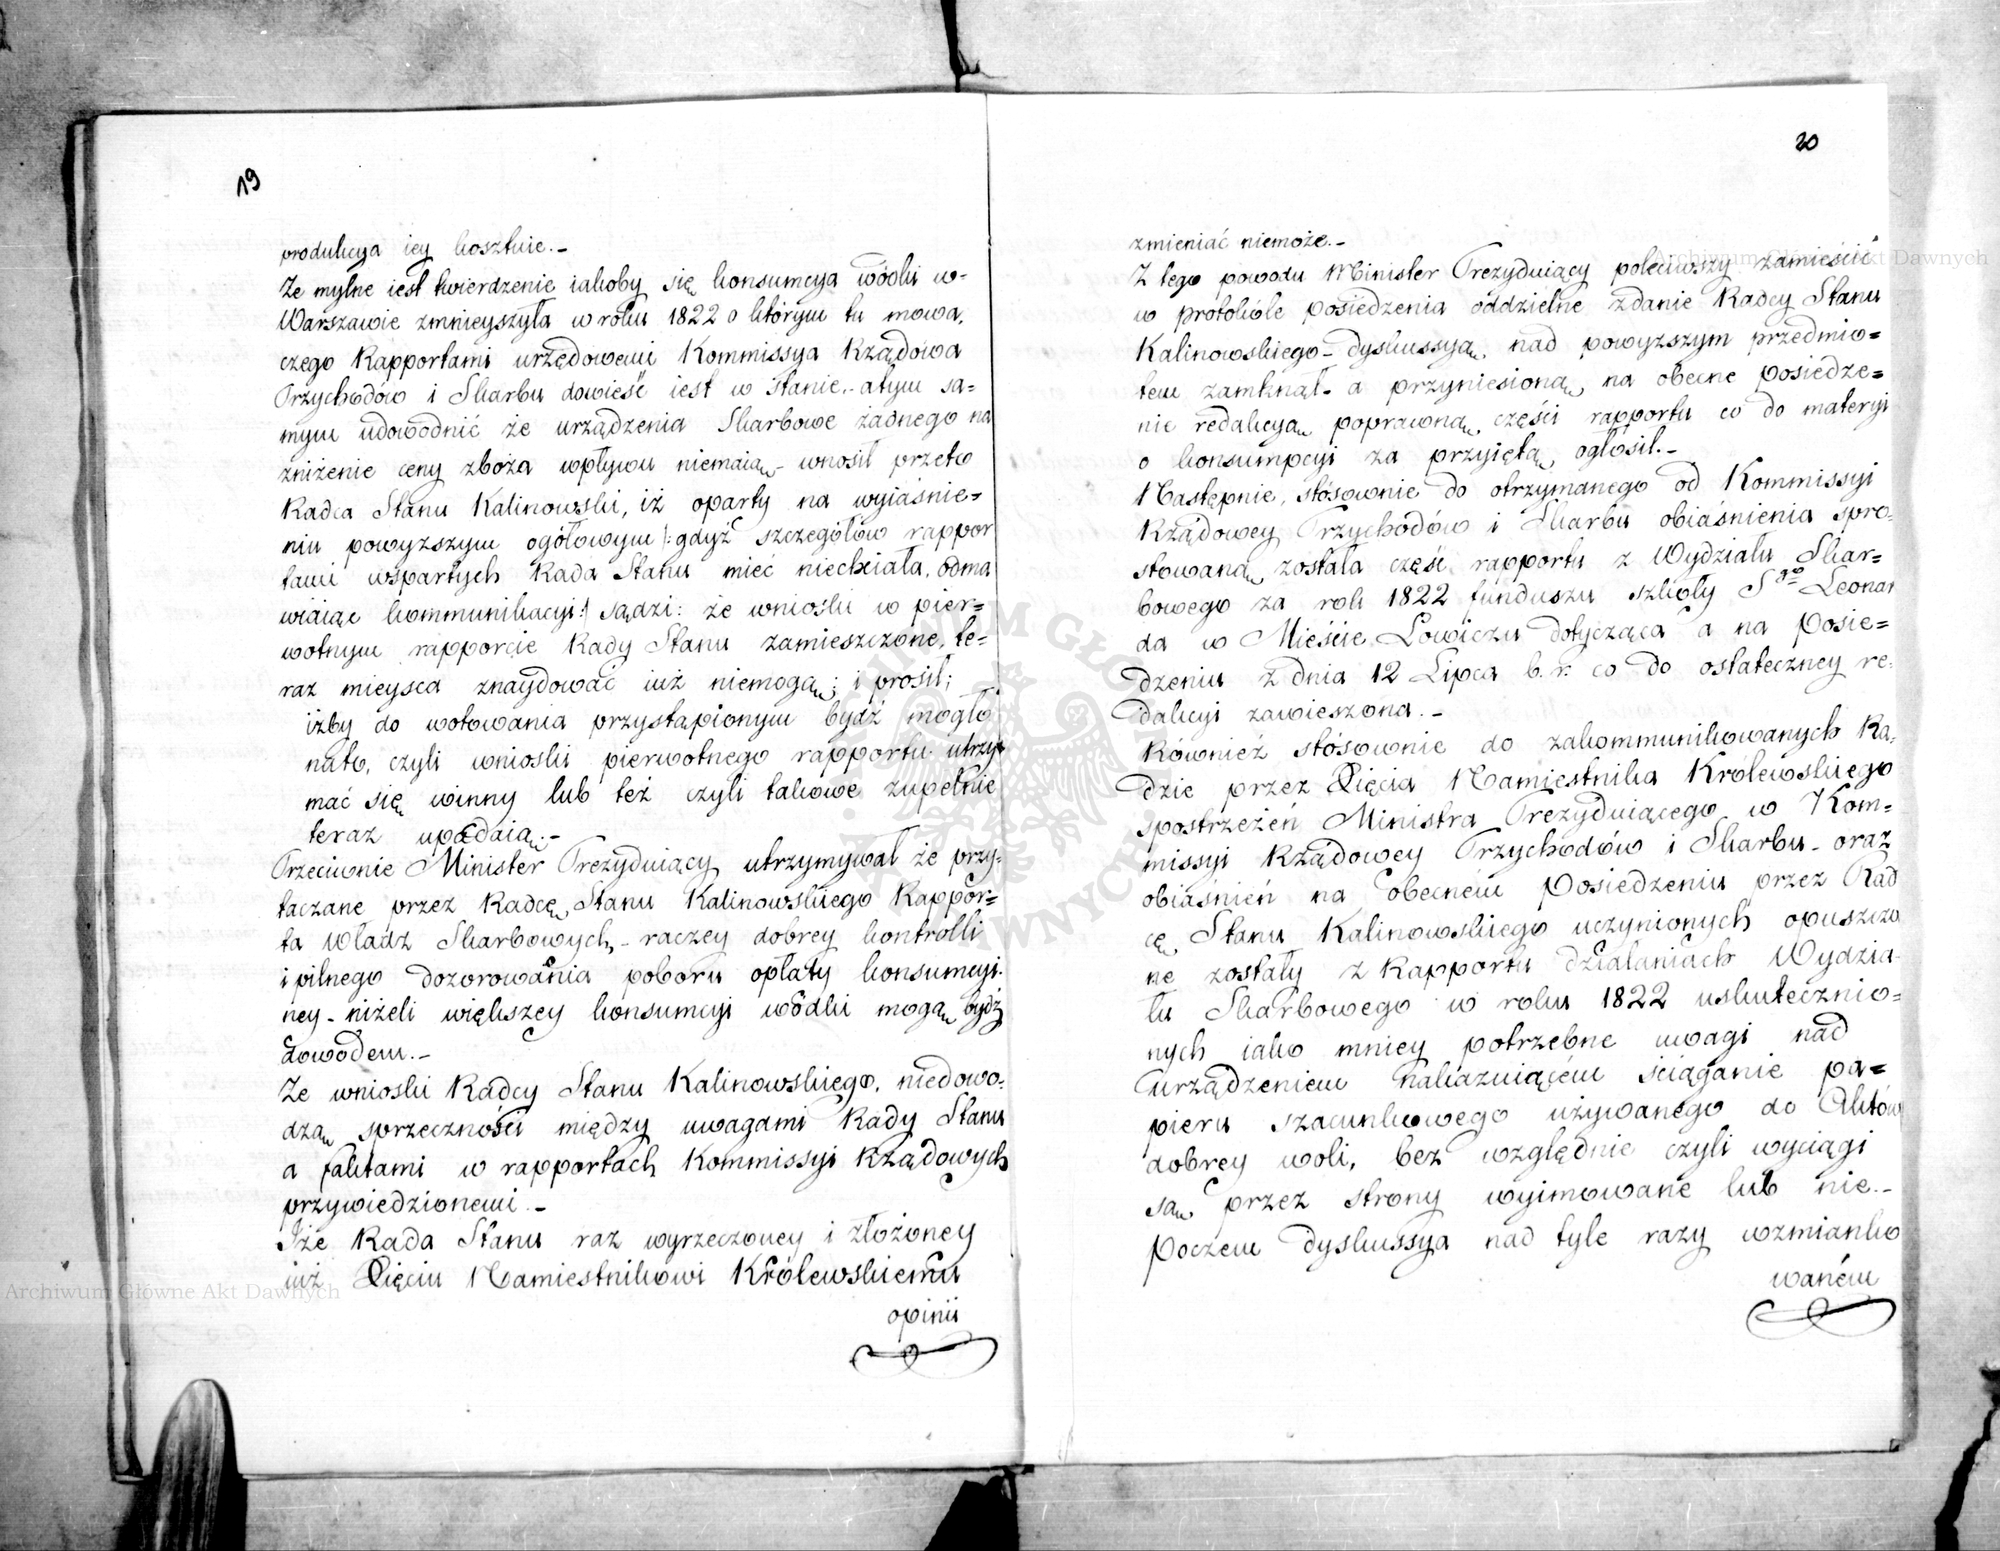 19
produkcya iey kosztuie.-
Że mylne iest twierdzenie iakoby się konsumcya wódki w-
Warszawie zmnieyszyła w roku 1822 o którym tu mowa,
czego Rapportami urzędowemi Kommissya Rządowa
Przychodów i Skarbu dowieść iest w stanie.- a tym sa=
mym udowodnić że urządzenia Skarbowe żadnego na
zniżenie ceny zboża wpływu niemaią - wnosił przeto
Radca Stanu Kalinowski, iż oparty na wyiaśnie=
niu powyższym ogółowym /: gdyż szczegółów rappor
tami wspartych Rada Stanu mieć niechciała, odma
wiaiąc kommunikacyi :/ sądzi: że wnioski w pier=
wotnym rapporcie Rady Stanu zamieszczone, te=
raz mieysca znaydować iuż niemogą; i prosił;
iżby do wotowania przystąpionym bydź mogło
nato, czyli wnioski pierwotnego rapportu utrzy
mać się winny lub też czyli takowe zupełnie
teraz upadaią.-
Przeciwnie Minister Prezyduiący utrzymywał że przy-
taczane przez Radcę Stanu Kalinowskiego Rappor=
ta Władz Skarbowych - raczey dobrey kontrolli
i pilnego dozorowania poboru opłaty konsumcyi-
ney - niżeli większey konsumcyi wódki mogą bydź
dowodem.-
Że wnioski Radcy Stanu Kalinowskiego, niedowo-
dzą sprzeczności między uwagami Rady Stanu
a faktami w rapportach Kommissyi Rządowych
przywiedzionemi.-
Iże Rada Stanu raz wyrzeczoney i złożoney
iuż Xięciu Namiestnikowi Królewskiemu
opinii
20
zmieniać niemoże.-
Z tego powodu Minister Prezyduiący poleciwszy zamieścić
w protokóle posiedzenia oddzielne zdanie Radcy Stanu
Kalinowskiego - dyskussyą nad powyższym przedmio=
tem zamknął - a przyniesioną na obecne posiedze=
nie redakcyą poprawną części rapportu co do materyi
o konsumpcyi za przyiętą ogłosił.-
Następnie, stósownie do otrzymanego od Kommissyi
Rządowey Przychodów i Skarbu obiaśnienia spro-
stowaną została część rapportu z Wydziału Skar=
bowego za rok 1822 funduszu szkoły Sgo Leonar
da w Mieście Łowiczu dotycząca a na Posie=
dzeniu z dnia 12 Lipca b. r. co do ostateczney re-
dakcyi zawieszona.-
Również stósownie do zakommunikowanych Ra-
dzie przez Xięcia Namiestnika Królewskiego
spostrzeżeń Ministra Prezyduiącego w Kom=
missyi Rządowey Przychodów i Skarbu - oraz
obiaśnień na obecném Posiedzeniu przez Rad
cę Stanu Kalinowskiego uczynionych opuszczo
ne zostały z Rapportu działaniach Wydzia-
łu Skarbowego w roku 1822 uskutecznio=
nych iako mniey potrzebne uwagi nad
urządzeniem nakazuiącém ściąganie pa=
pieru szacunkowego używanego do Aktów
dobrey woli, bez względnie czyli wyciągi
są przez strony wyimowane lub nie.-
Poczem dyskussya nad tyle razy wzmianko
waném
Archiwum Główne Akt Dawnych
Archiwum Główne Akt Dawnych